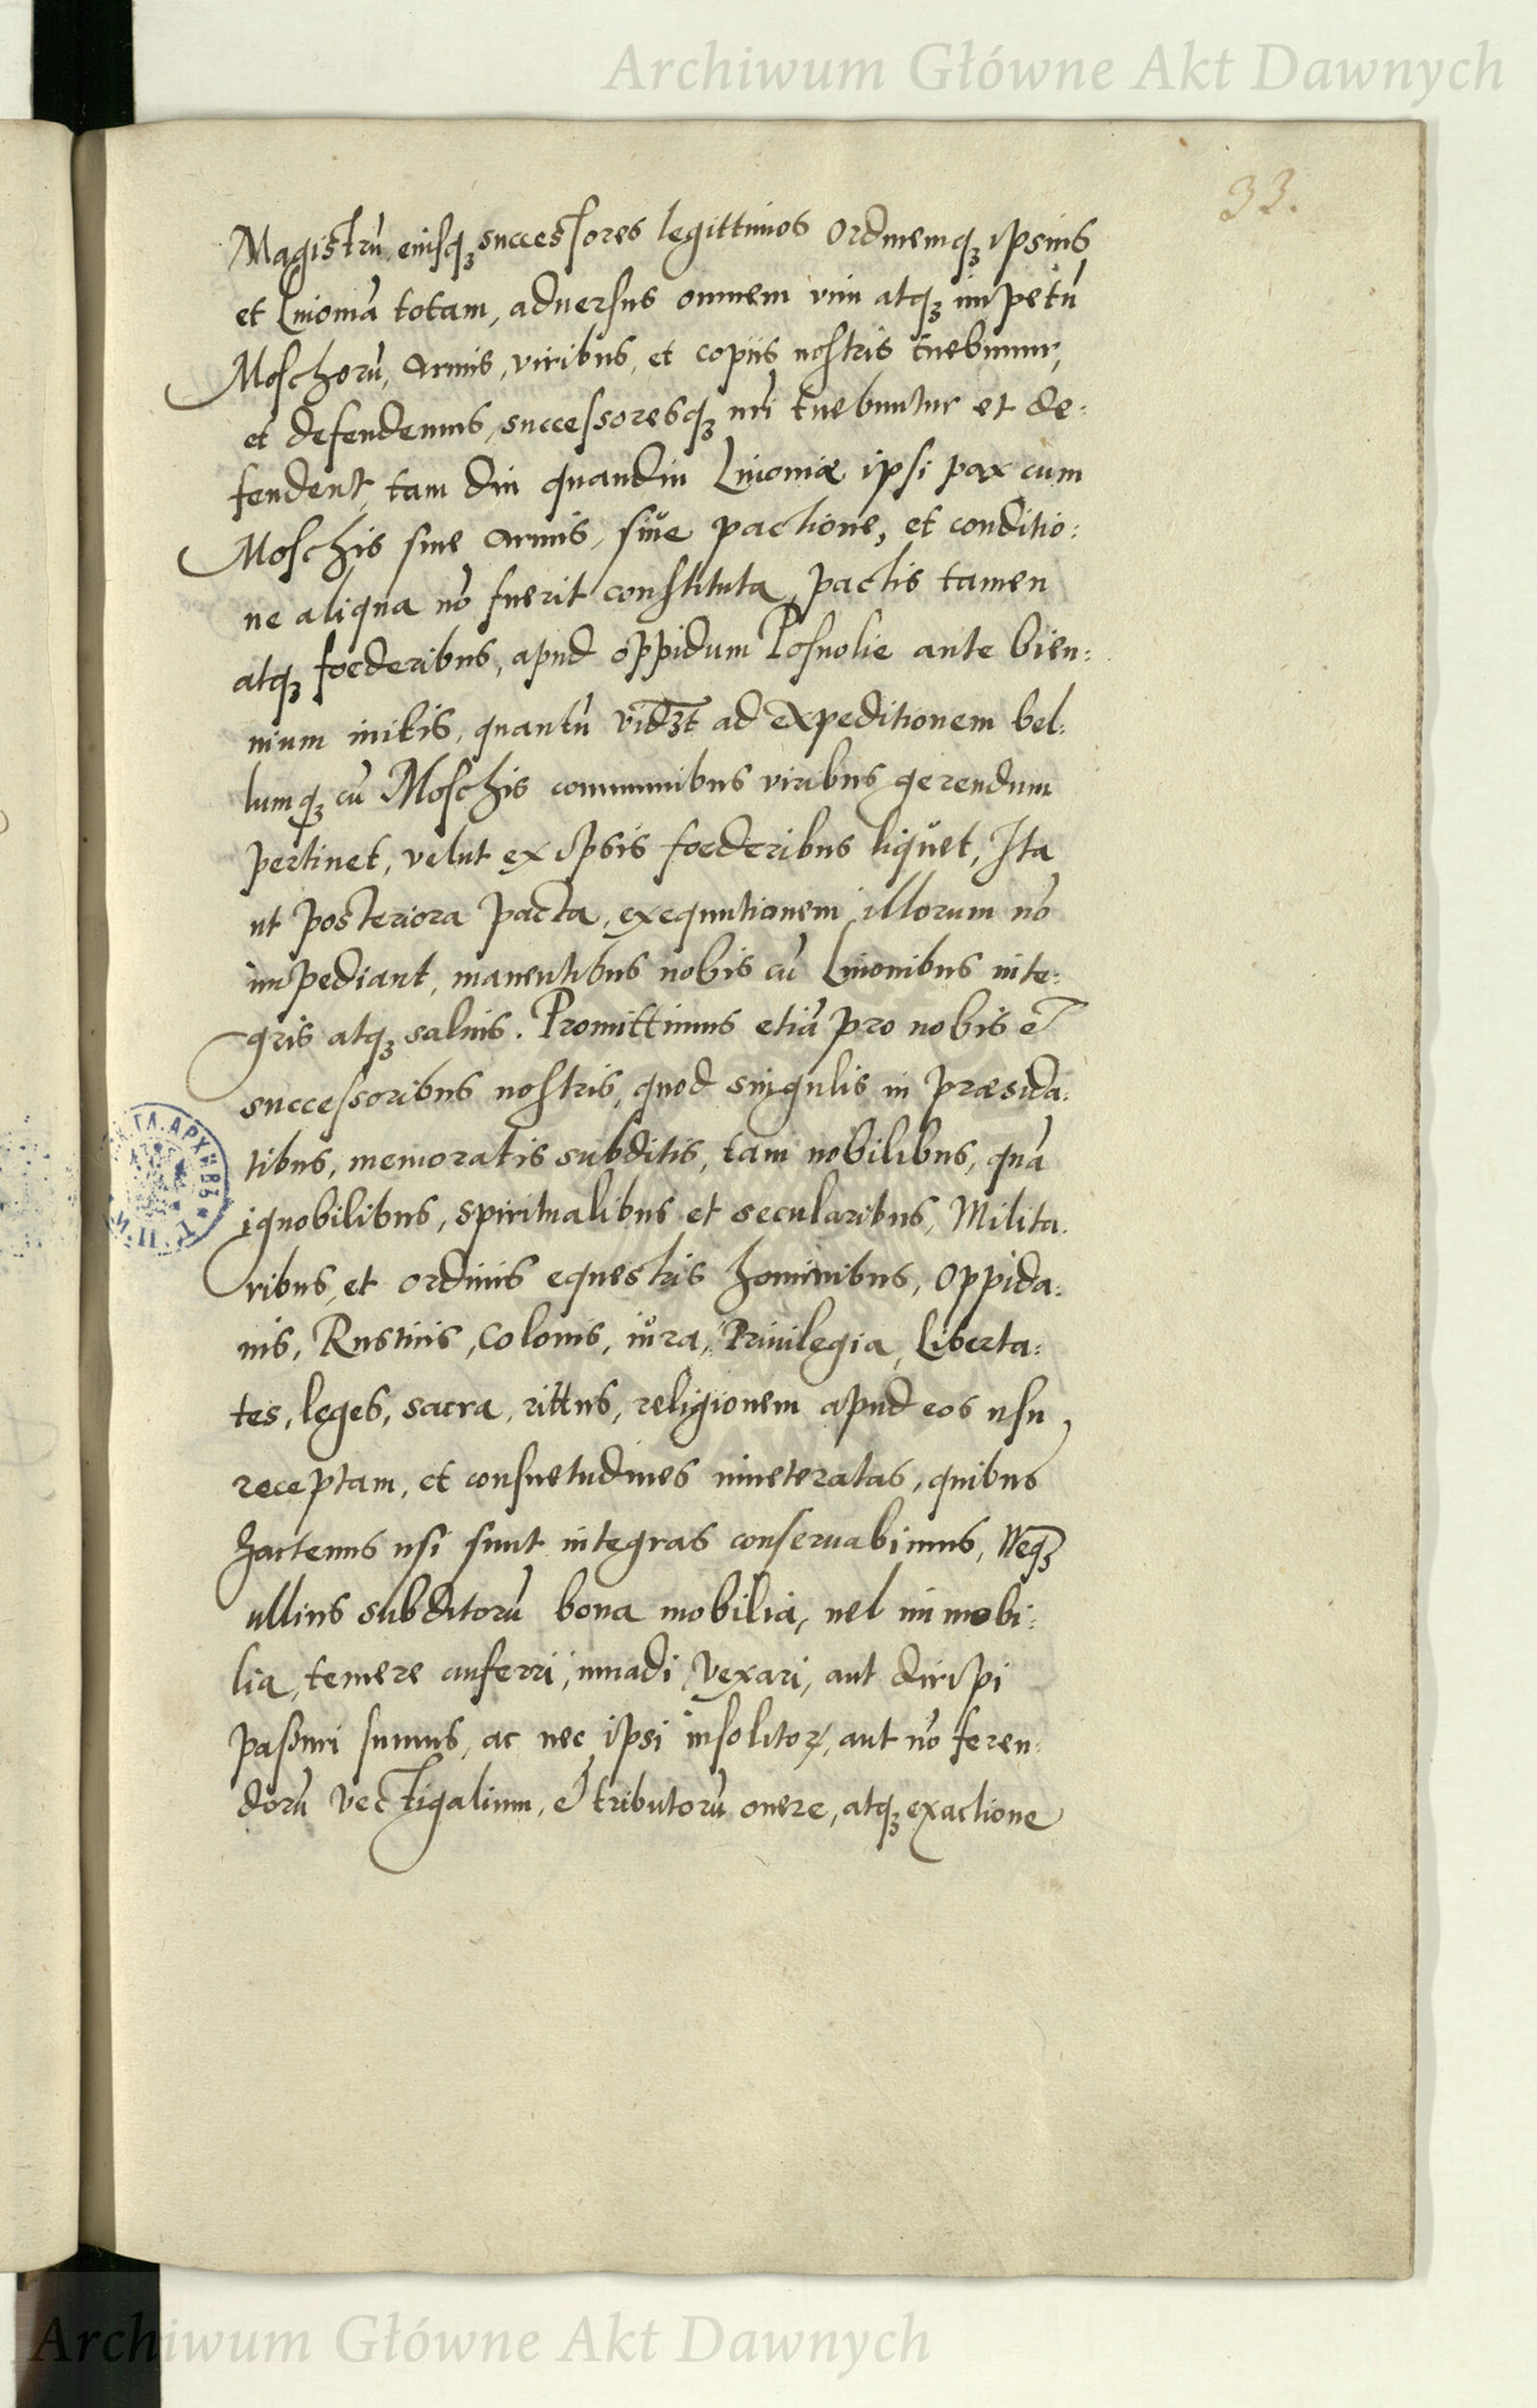 Archiwum Główne Akt Dawnych
33.
Magistrū, eiusq₃ successores legittimos Ordinemq₃ ipsius
et Liuoniā totam, aduersus omnem vim atq₃ impetū
Moschorū, armis, viribus, et copiis nostris tuebimur,
et defendemus, successoresq₃ nri tuebuntur et de:
fendent, tam diu quandiu Liuoniæ ipsi pax cum
Moschis siue armis, siue pactione, et conditio:
ne aliqua nō fuerit constituta, pactis tamen
atq₃ foederibus, apud oppidum Posuolie ante bien:
nium initis, quantū vidȝt ad expeditionem bel:
lumq₃ cū Moschis communibus viribus gerendum
pertinet, velut ex ipsis foederibus liquet, Ita
ut posteriora pacta, exequutionem illorum nō
impediant, manentibus nobis cū Liuonibus inte:
gris atq₃ saluis. Promittimus etiā pro nobis et
successoribus nostris, quod singulis in præsida:
tibus, memoratis subditis, tam nobilibus, quā
ignobilibus, spiritualibus et secularibus, Milita:
ribus, et ordinis equestris hominibus, Oppida:
nis, Rusticis, Colonis, iura, Priuilegia, Liberta:
tes, leges, sacra, rittus, religionem apud eos usu
receptam, et consuetudines inueteratas, quibus
hactenus usi sunt integras conseruabimus, Neq₃
ullius subditorū bona mobilia, uel immobi:
lia, temere auferri, inuadi, vexari, aut diripi
passuri sumus, ac nec ipsi insolitoꝝ, aut nō feren:
dorū vectigalium, et tributorū onere, atq₃ exactione
ГЛ. АРХИВЪ
Archiwum Główne Akt Dawnych